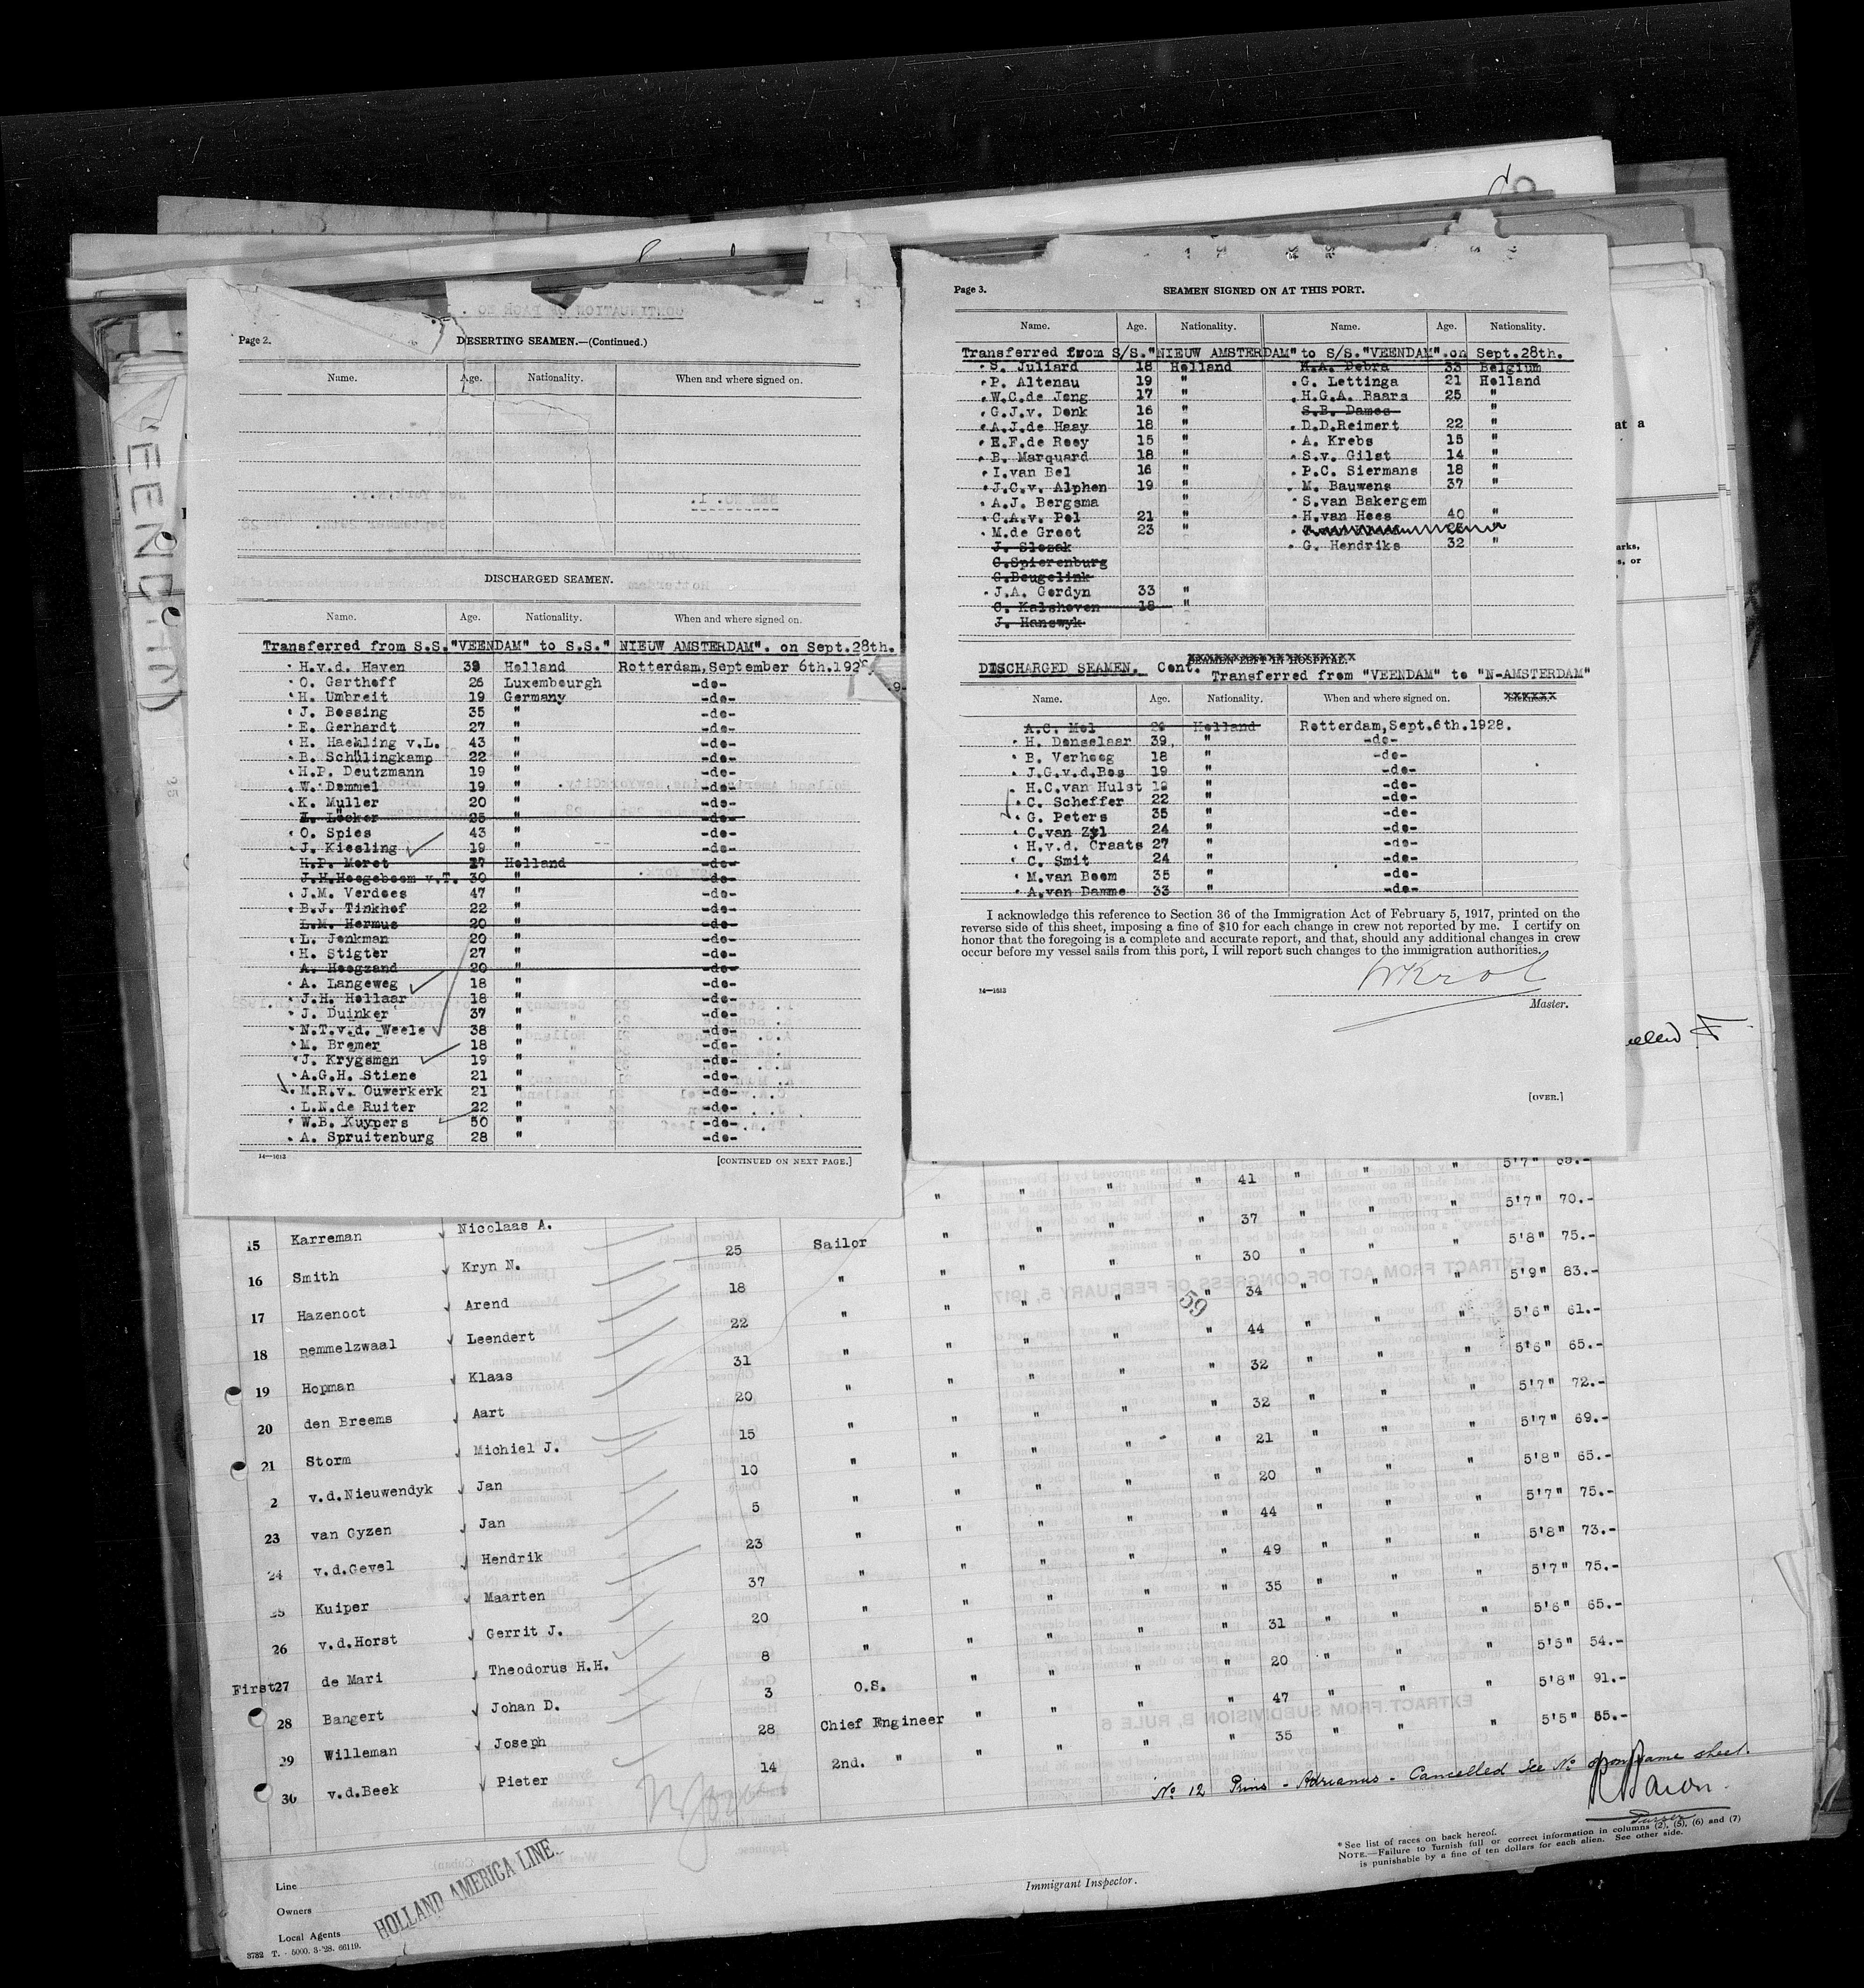 Page 2.
DESERTING SEAMEN.—(Continued.)
Name. Age. Nationality. When and where signed on.
DISCHARGED SEAMEN.
Name. Age. Nationality. When and where signed on.
Transferred from S.S."VEENDAM" to S.S." NIEUW AMSTERDAM". on Sept.28th.
H.v.d. Haven 39 Holland Rotterdam,September 6th.192
O. Garthoff 26 Luxembourgh -do-
H. Umbreit 19 Germany -do-
J. Bossing 35 " -do-
E. Gerhardt 27 " -do-
H. Haehling v.L. 43 " -do-
B. Schülingkamp 22 " -do-
H.P. Deutzmann 19 " -do-
W. Dommel 19 " -do-
K. Muller 20 " -do-
Löcker 25 " -do-
O. Spies 43 " -do-
J. Kiesling 19 " -do-
H.P. Moret 17 Holland -do-
J.H.Hoogeboom v.T. 30 " -do-
J.M. Verdoes 47 " -do-
B.J. Tinkhof 22 " -do-
L.M. Hermus 20 " -do-
L. Jonkman 20 " -do-
H. Stigter 27 " -do-
A. Hoogzand 20 " -do-
A. Langeweg 18 " -do-
J.H. Hollaar 18 " -do-
J. Duinker 37 " -do-
N.T.v.d. Weele 38 " -do-
M. Bremer 18 " -do-
J. Krygsman 19 " -do-
A.G.H. Stiene 21 " -do-
M.R.v. Ouwerkerk 21 " -do-
L.N.de Ruiter 22 " -do-
W.B. Kuypers 50 " -do-
A. Spruitenburg 28 " -do-
14—1613 [CONTINUED ON NEXT PAGE.]
Page 3. SEAMEN SIGNED ON AT THIS PORT.
Name. Age. Nationality. Name. Age. Nationality.
Transferred from S/S."NIEUW AMSTERDAM" to S/S."VEENDAM".on Sept.28th.
S. Juliard 18 Holland H.A. Debra 33 Belgium
P. Altenau 19 " G. Lettinga 21 Holland
W.C.de Jong 17 " H.G.A. Baars 25 "
G.J.v. Donk 16 " S.B. Dames "
A.J.de Haay 18 " D.D.Reimert 22 "
E.F.de Rooy 15 " A. Krebs 15 "
B. Marquard 18 " S.v. Gilst 14 "
I.van Bel 16 " P.C. Siermans 18 "
J.C.v. Alphen 19 " M. Bauwens 37 "
A.J. Bergsma " S.van Bakergem
C.A.v. Pol 21 " H.van Hees 40 "
M.de Groot 23 "
J. Slozak G. Hendriks 32 "
C.Spierenburg
C.Beugelink
J.A. Gordyn 33 "
C. Kalshoven 18 "
J. Hanswyk
SEAMEN LEFT IN HOSPITAL.
DISCHARGED SEAMEN. Cont. Transferred from "VEENDAM" to "N-AMSTERDAM"
Name. Age. Nationality. When and where signed on.
A.C. Mol 26 Holland Rotterdam,Sept.6th.1928.
H. Donselaar 39, " -do-
B. Verhoog 18 " -do-
J.G.v.d.Bos 19 " -do-
H.C.van Hulst 19 " -do-
C. Scheffer 22 " -do-
G. Peters 35 " -do-
C.van Zyl 24 " -do-
H.v.d. Craats 27 " -do-
C. Smit 24 " -do-
M.van Boom 35 " -do-
A.van Damme 33 " -do-
I acknowledge this reference to Section 36 of the Immigration Act of February 5, 1917, printed on the
reverse side of this sheet, imposing a fine of $10 for each change in crew not reported by me. I certify on
honor that the foregoing is a complete and accurate report, and that, should any additional changes in crew
occur before my vessel sails from this port, I will report such changes to the immigration authorities.
WKrol
14—1613 Master.
[OVER.]
at a
arks,
s, or
" " " " 41 " " " 5'7" 65.-
15 Karreman Nicolaas A. 25 Sailor " " " " 37 " " " 5'7" 70.-
16 Smith Kryn N. 18 " " " " " 30 " " " 5'8" 75.-
17 Hazenoot Arend 22 " " " " " 34 " " " 5'9" 83.-
59
18 Remmelzwaal Leendert 31 " " " " " 44 " " " 5'6" 61.-
19 Hopman Klaas 20 " " " " " 32 " " " 5'6" 65.-
20 den Breems Aart 15 " " " " " 32 " " " 5'7" 72.-
21 Storm Michiel J. 10 " " " " " 21 " " " 5'7" 69.-
2 v.d.Nieuwendyk Jan 5 " " " " " 20 " " " 5'8" 65.-
23 van Gyzen Jan 23 " " " " " 44 " " " 5'7" 75.-
24 v.d.Gevel Hendrik 37 " " " " " 49 " " " 5'8" 73.-
25 Kuiper Maarten 20 " " " " " 35 " " " 5'7" 75.-
26 v.d.Horst Gerrit J. 8 " " " " " 31 " " " 5'6" 65.-
First27 de Mari Theodorus H.H. 3 O.S. " " " " 20 " " " 5'5" 54.-
28 Bangert Johan D. 28 Chief Engineer " " " " 47 " " " 5'8" 91.-
29 Willeman Joseph 14 2nd. " " " " " 35 " " " 5'5" 55.-
30 v.d.Beek Pieter
No 12 Prins - Adrianus - Cancelled See No on same sheet.
Purser
* See list of races on back hereof.
NOTE.—Failure to furnish full or correct information in columns (2), (5), (6) and (7)
is punishable by a fine of ten dollars for each alien. See other side.
Line
Owners
Local Agents
HOLLAND AMERICA LINE.
Immigrant Inspector.
3732 T. - 5000. 3-'28. 66119.